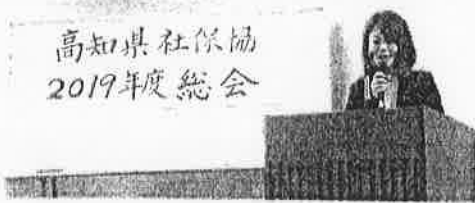 高知県社保協
2019年度総会